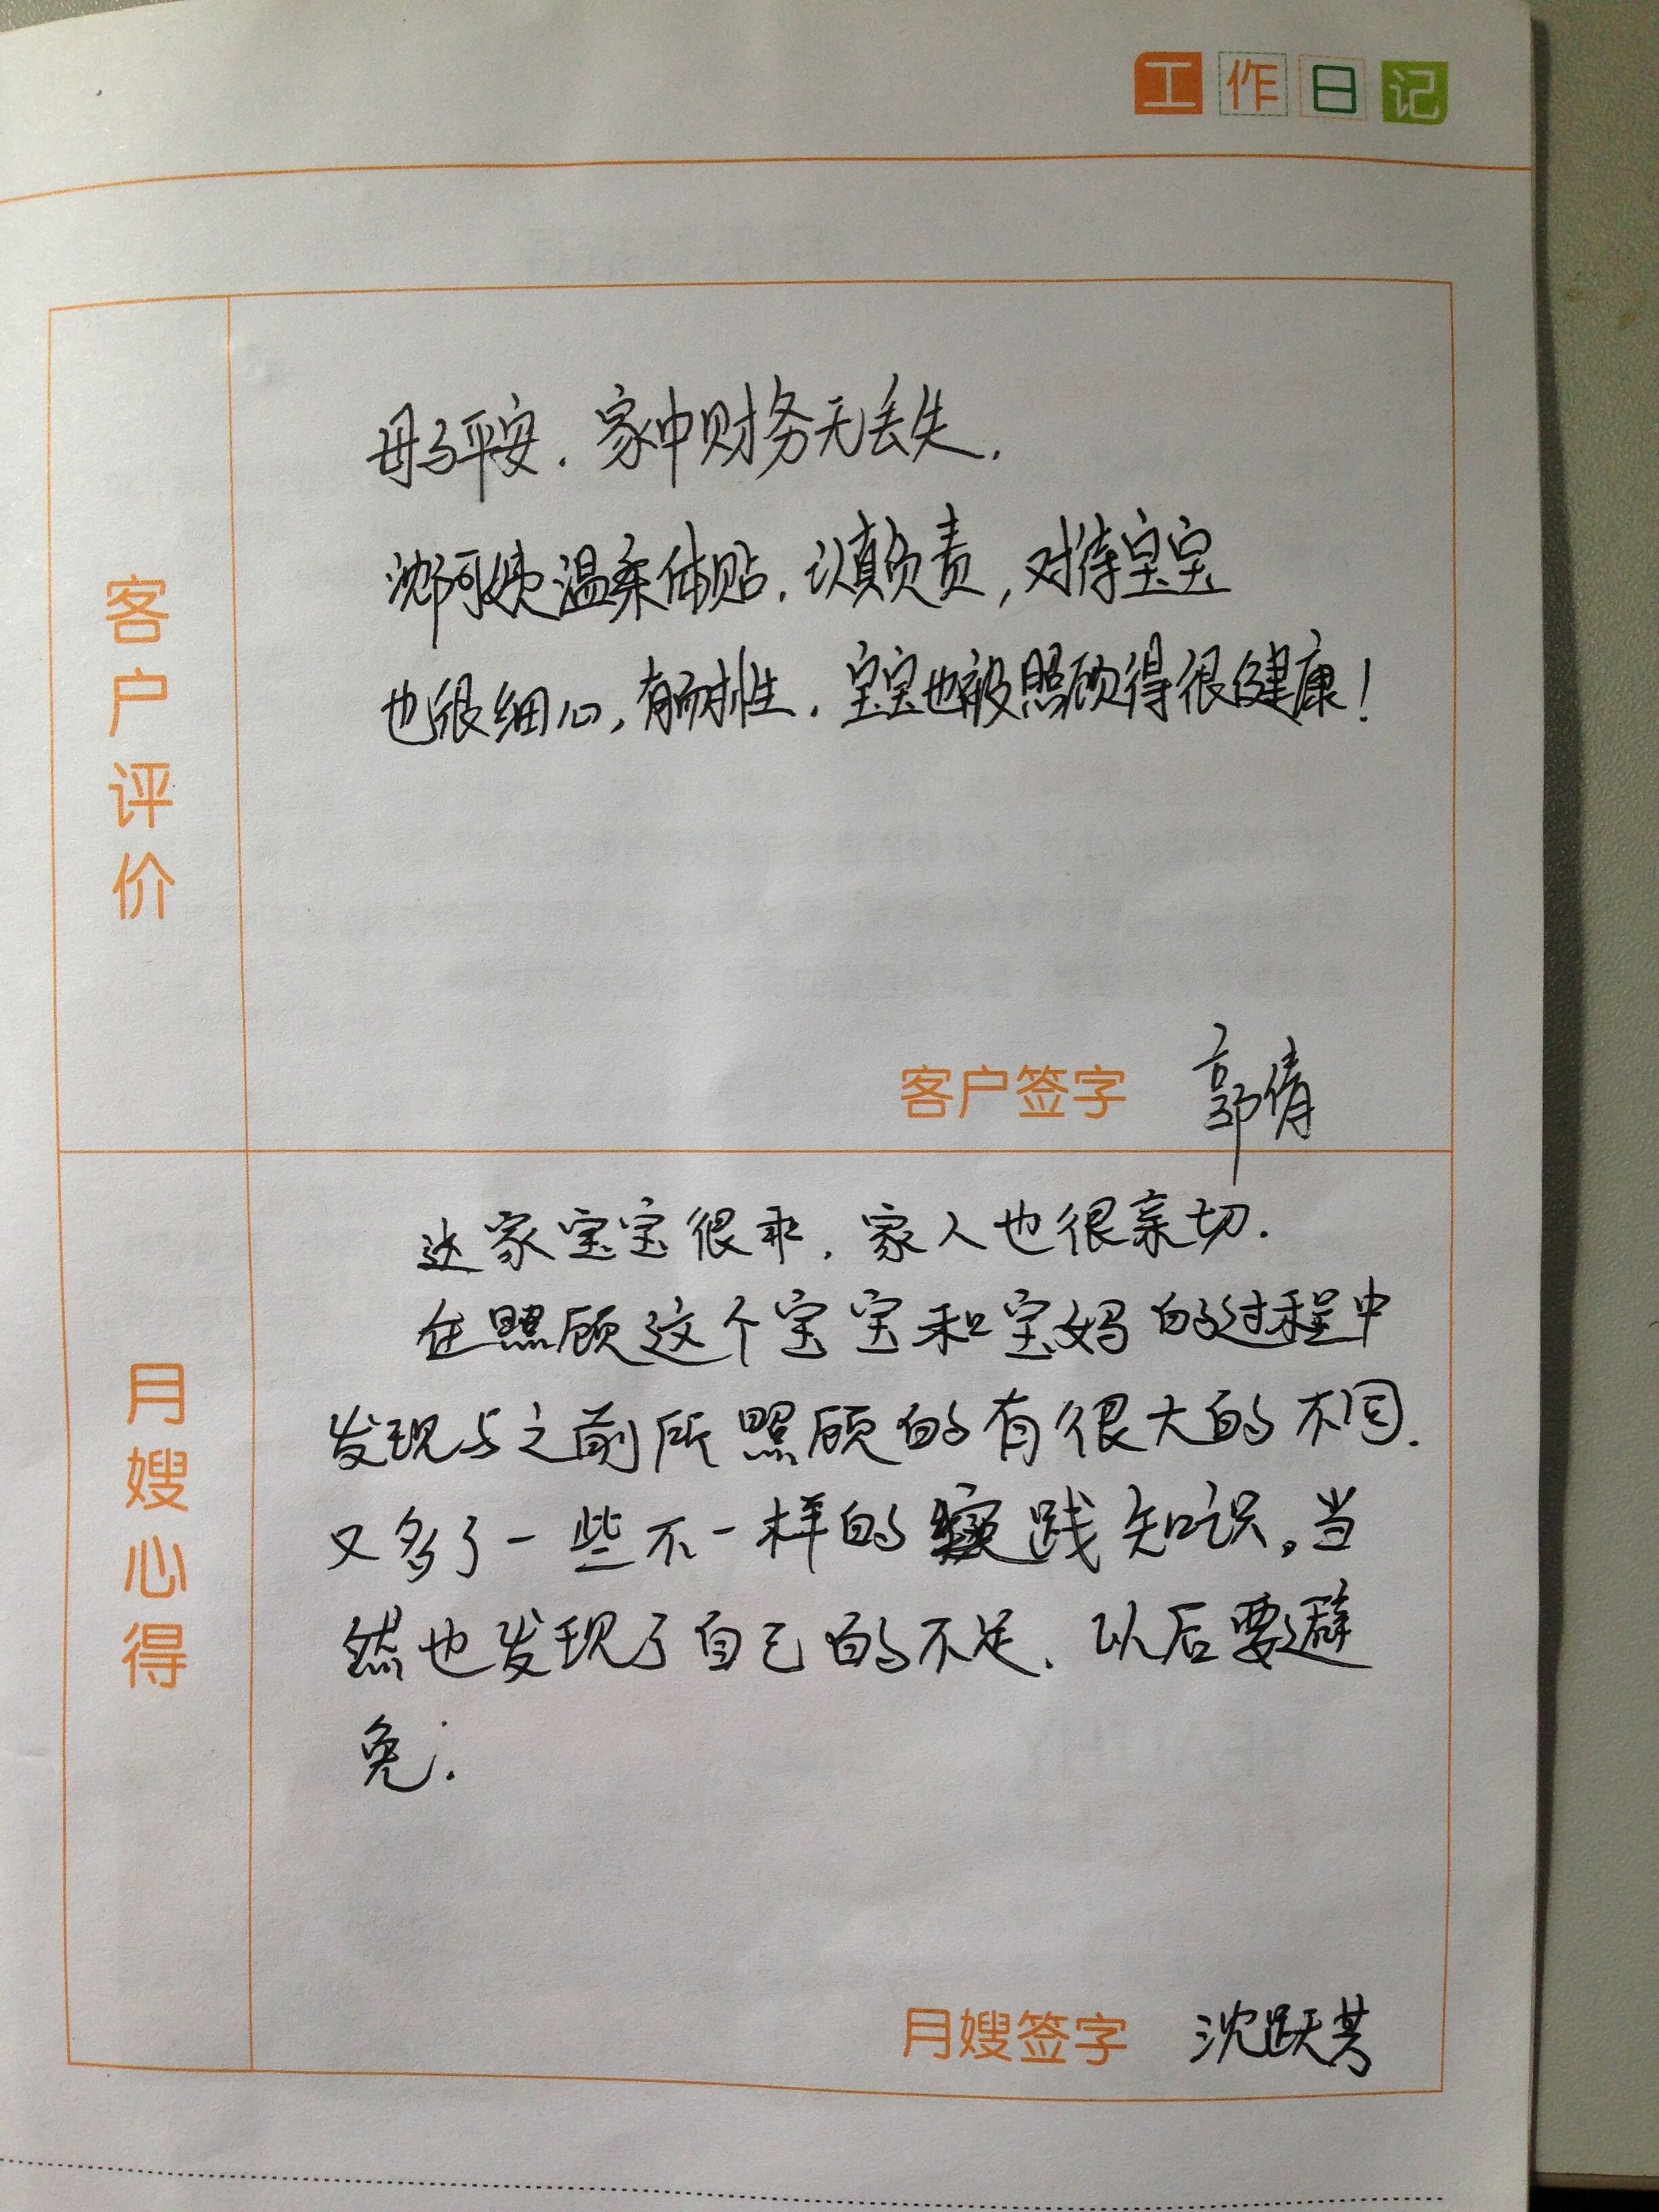 工作日记
母子平安.家中财务无丢失.
沈阿姨温柔体贴.认真负责,对待宝宝
也很细心,有耐性.宝宝也被照顾得很健康!
客户评价
客户签字 郭倩
这家宝宝很乖.家人也很亲切.
在照顾这个宝宝和宝妈的过程中
发现与之前所照顾的有很大的不同.
又多了一些不一样的实践知识。当
然也发现了自己的不足.以后要避
免.
月嫂心得
月嫂签字 沈跃芳